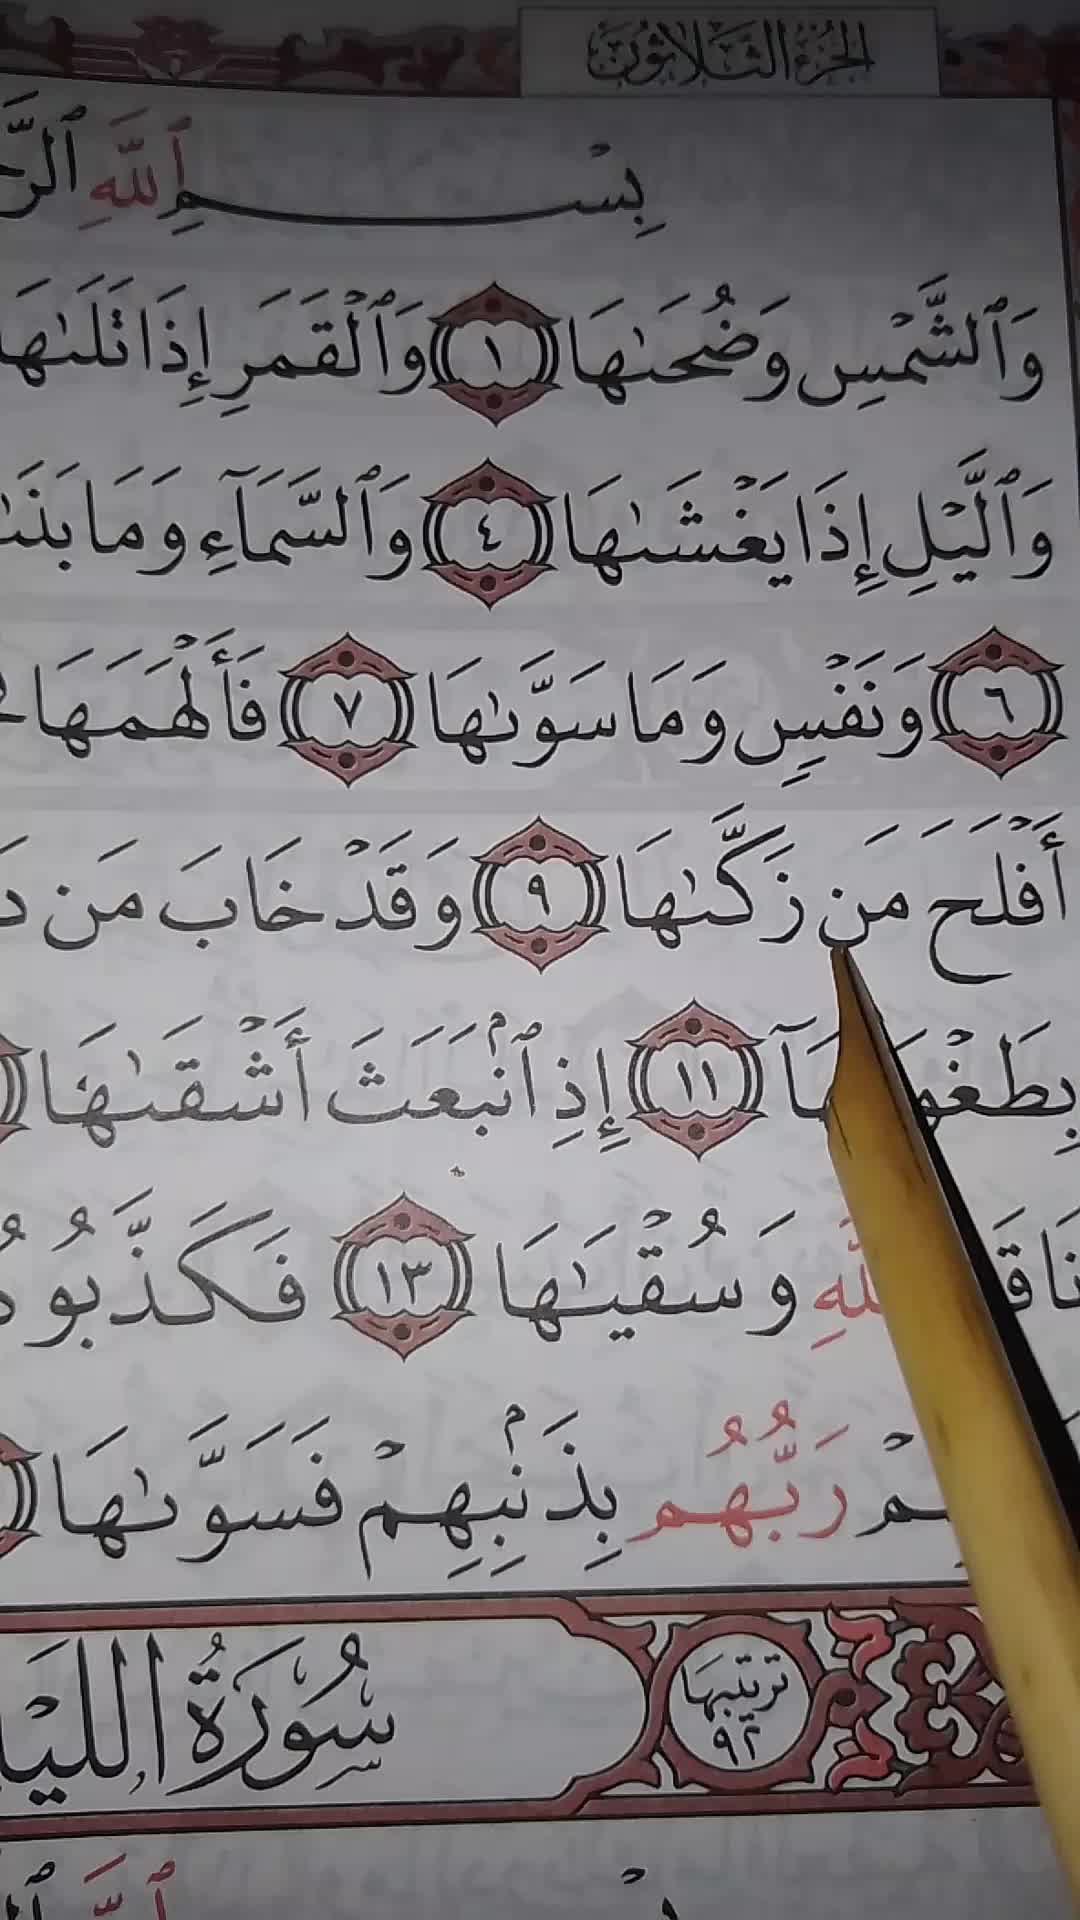 الجزء الثلاثون
بِسْمِ ٱللَّهِ
وَٱلشَّمْسِ وَضُحَىٰهَا ١ وَٱلْقَمَرِ إِذَا تَلَىٰهَا
وَٱلَّيْلِ إِذَا يَغْشَىٰهَا ٤ وَٱلسَّمَآءِ وَمَا
٦ وَنَفْسٍ وَمَا سَوَّىٰهَا ٧ فَأَلْهَمَهَا
أَفْلَحَ مَن زَكَّىٰهَا ٩ وَقَدْ خَابَ مَن
١١ إِذِ ٱنۢبَعَثَ أَشْقَىٰهَا
وَسُقْيَـٰهَا ١٣ فَكَذَّبُو
رَبُّهُم بِذَنۢبِهِمْ فَسَوَّىٰهَا
سُورَةُ ترتيبها ٩٢